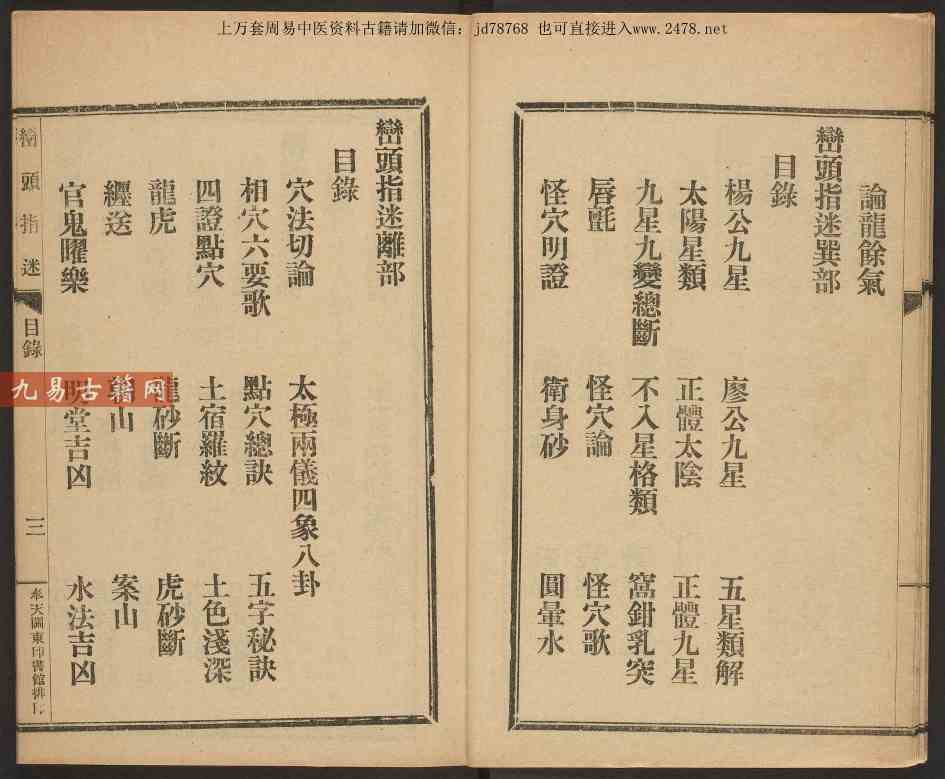 上万套周易中医资料古籍请加微信：jd78768 也可直接进入www.2478.net
論龍餘氣
巒頭指迷巽部
目錄
楊公九星 廖公九星 五星類解
太陽星類 正體太陰 正體九星
九星九變總斷 不入星格類 窩鉗乳突
唇氈 怪穴論 怪穴歌
怪穴明證 衛身砂 圓暈水
巒頭指迷離部
目錄
穴法切論 太極兩儀四象八卦
相穴六要歌 點穴總訣 五字秘訣
四證點穴 土宿羅紋 土色淺深
龍虎 龍砂斷 虎砂斷
纏送 山 案山
官鬼曜樂 明堂吉凶 水法吉凶
巒頭指迷
目錄
三
奉天關東印書館排
九易古籍网